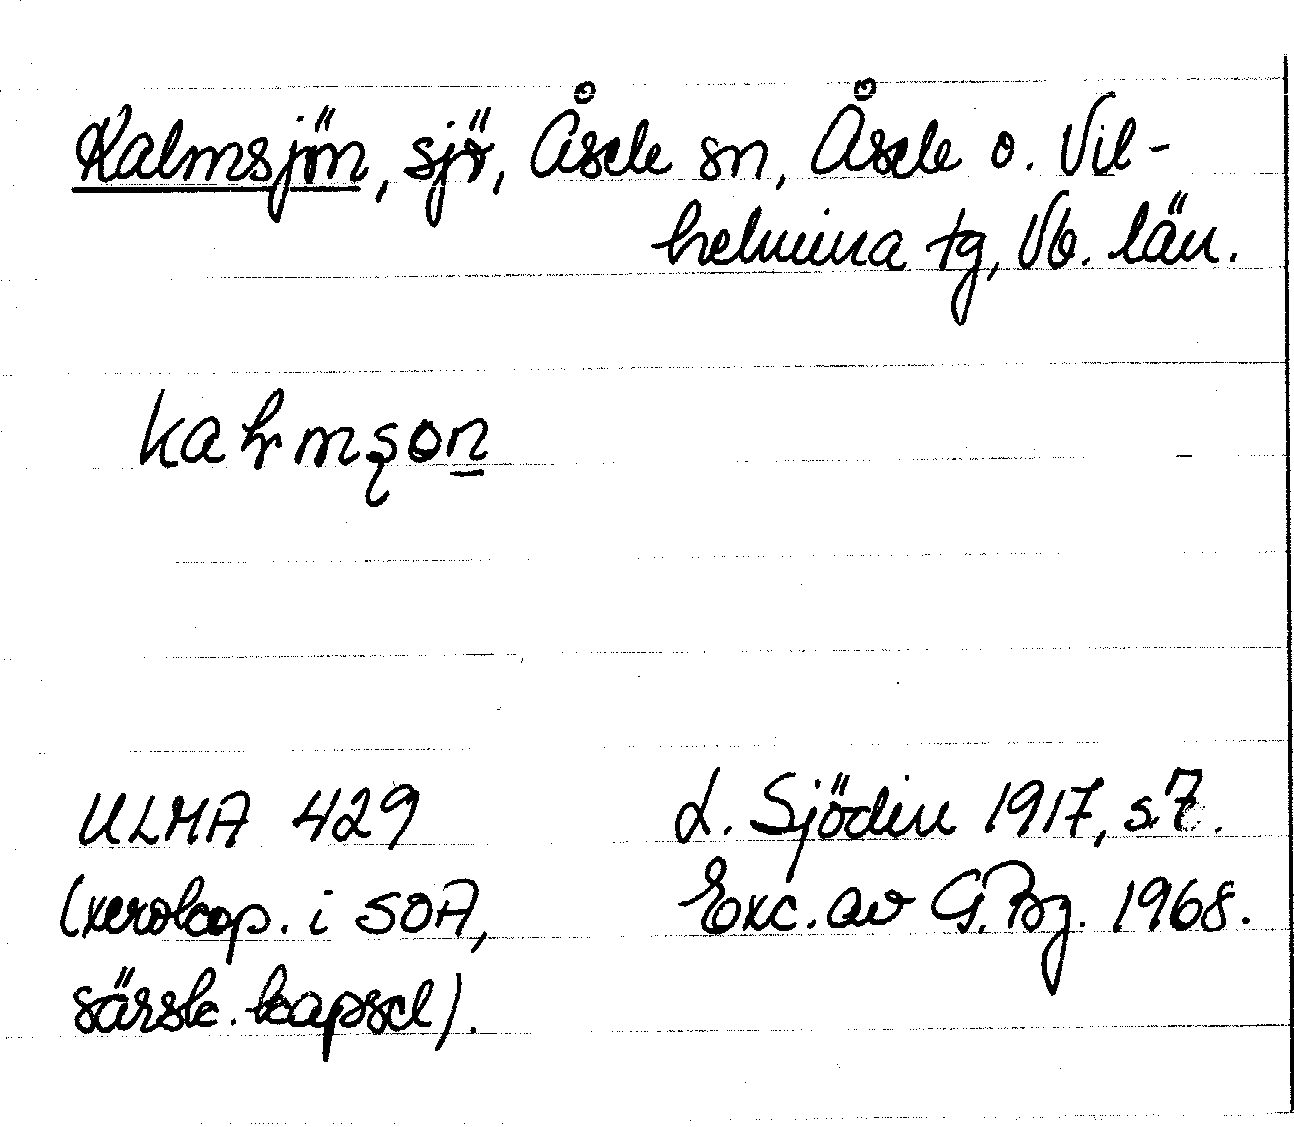 Kalmsjön, sjö, Åsele sn, Åsele o. Vil-
helmina tg, Vb. län.
ULMA 429
(xerokop. i SOA,
särsk. kapsel).
L. Sjödin 1917, s. 7.
Exc. av G. Bg. 1968.